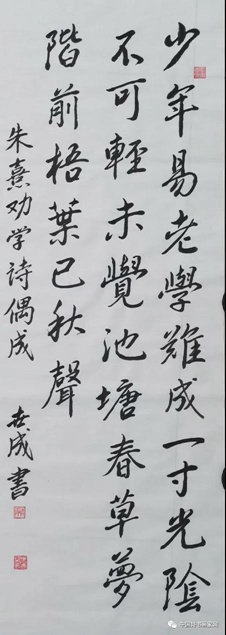 少年易老學難成一寸光陰
不可輕未覺池塘春草夢
階前梧葉已秋聲
朱熹劝学詩偶成 世成書